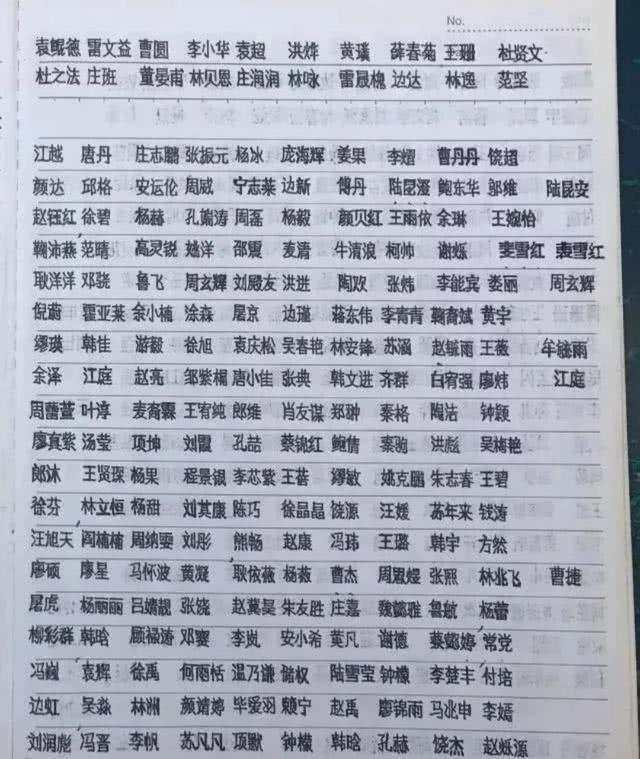 No.
袁鲲德 雷文益 曹圆 李小华 袁超 洪烨 黄瑾 薛春菊 王珊 杜贤文
杜之法 庄班 董晏甫 林贝恩 庄润润 林咏 雷晟槐 边达 林逸 范坚
江越 唐丹 庄志鹏 张振元 杨冰 庞海辉 姜果 李熠 曹丹丹 饶超
颜达 邱格 安运伦 周威 宁志莱 边新 傅丹 陆昆澄 鲍东华 邬维 陆昆安
赵钰红 徐碧 杨赫 孔端涛 周磊 杨毅 颜贝红 王雨依 余琳 王婉怡
鞠沛燕 范晴 高灵锐 姚洋 邵震 麦清 牛清浪 柯帅 谢烁 裴雪红
耿洋洋 邓骁 鲁飞 周玄辉 刘殿友 洪进 陶欢 张炜 李能宾 娄丽 周玄辉
倪蔚 霍亚莱 余小楠 涂森 屠京 边瑾 蒋东伟 李青青 鞠育斌 黄宇
缪瑛 韩佳 游毅 徐旭 袁庆松 吴春艳 林安锋 苏涵 赵毓雨 王薇 牟毓雨
余泽 江庭 赵亮 邹紫楠 唐小佳 张典 韩文进 齐群 白宥强 廖炜 江庭
周蕾萱 叶淳 麦育霖 王宥纯 郎维 肖友谋 郑翀 秦格 陶洁 钟颖
廖真紫 汤莹 项坤 刘霞 孔喆 蔡锦红 鲍倩 秦驰 洪彪 吴梅艳
郎沐 王贤琛 杨果 程景银 李芯紫 王蓓 缪敏 姚克鹏 朱志春 王碧
徐芬 林立恒 杨甜 刘其康 陈巧 徐晶晶 饶源 汪媛 苏年来 钱涛
汪旭天 阎楠楠 周纳雯 刘彤 熊畅 赵康 冯玮 王璐 韩宇 方然
廖硕 廖星 马怀波 黄凝 耿依薇 杨薇 曹杰 周盟煜 张熙 林兆飞 曹捷
屠虎 杨丽丽 吕婧靓 张饶 赵冀昊 朱友胜 庄嘉 魏懿雅 鲁敏 杨蕾
柳彩群 韩晗 顾福涛 邓雯 李岚 安小希 黄凡 谢德 蔡懿婷 常党
冯巍 袁辉 徐禹 何雨恬 温乃谦 储权 陆雪莹 钟檬 李楚丰 付培
边虹 吴淼 林洲 颜靖婷 毕爱羽 赖宁 赵禹 廖锦雨 马兆申 李嫣
刘润彪 冯晋 李帆 苏凡凡 项默 钟檬 韩晗 孔赫 饶杰 赵烁源